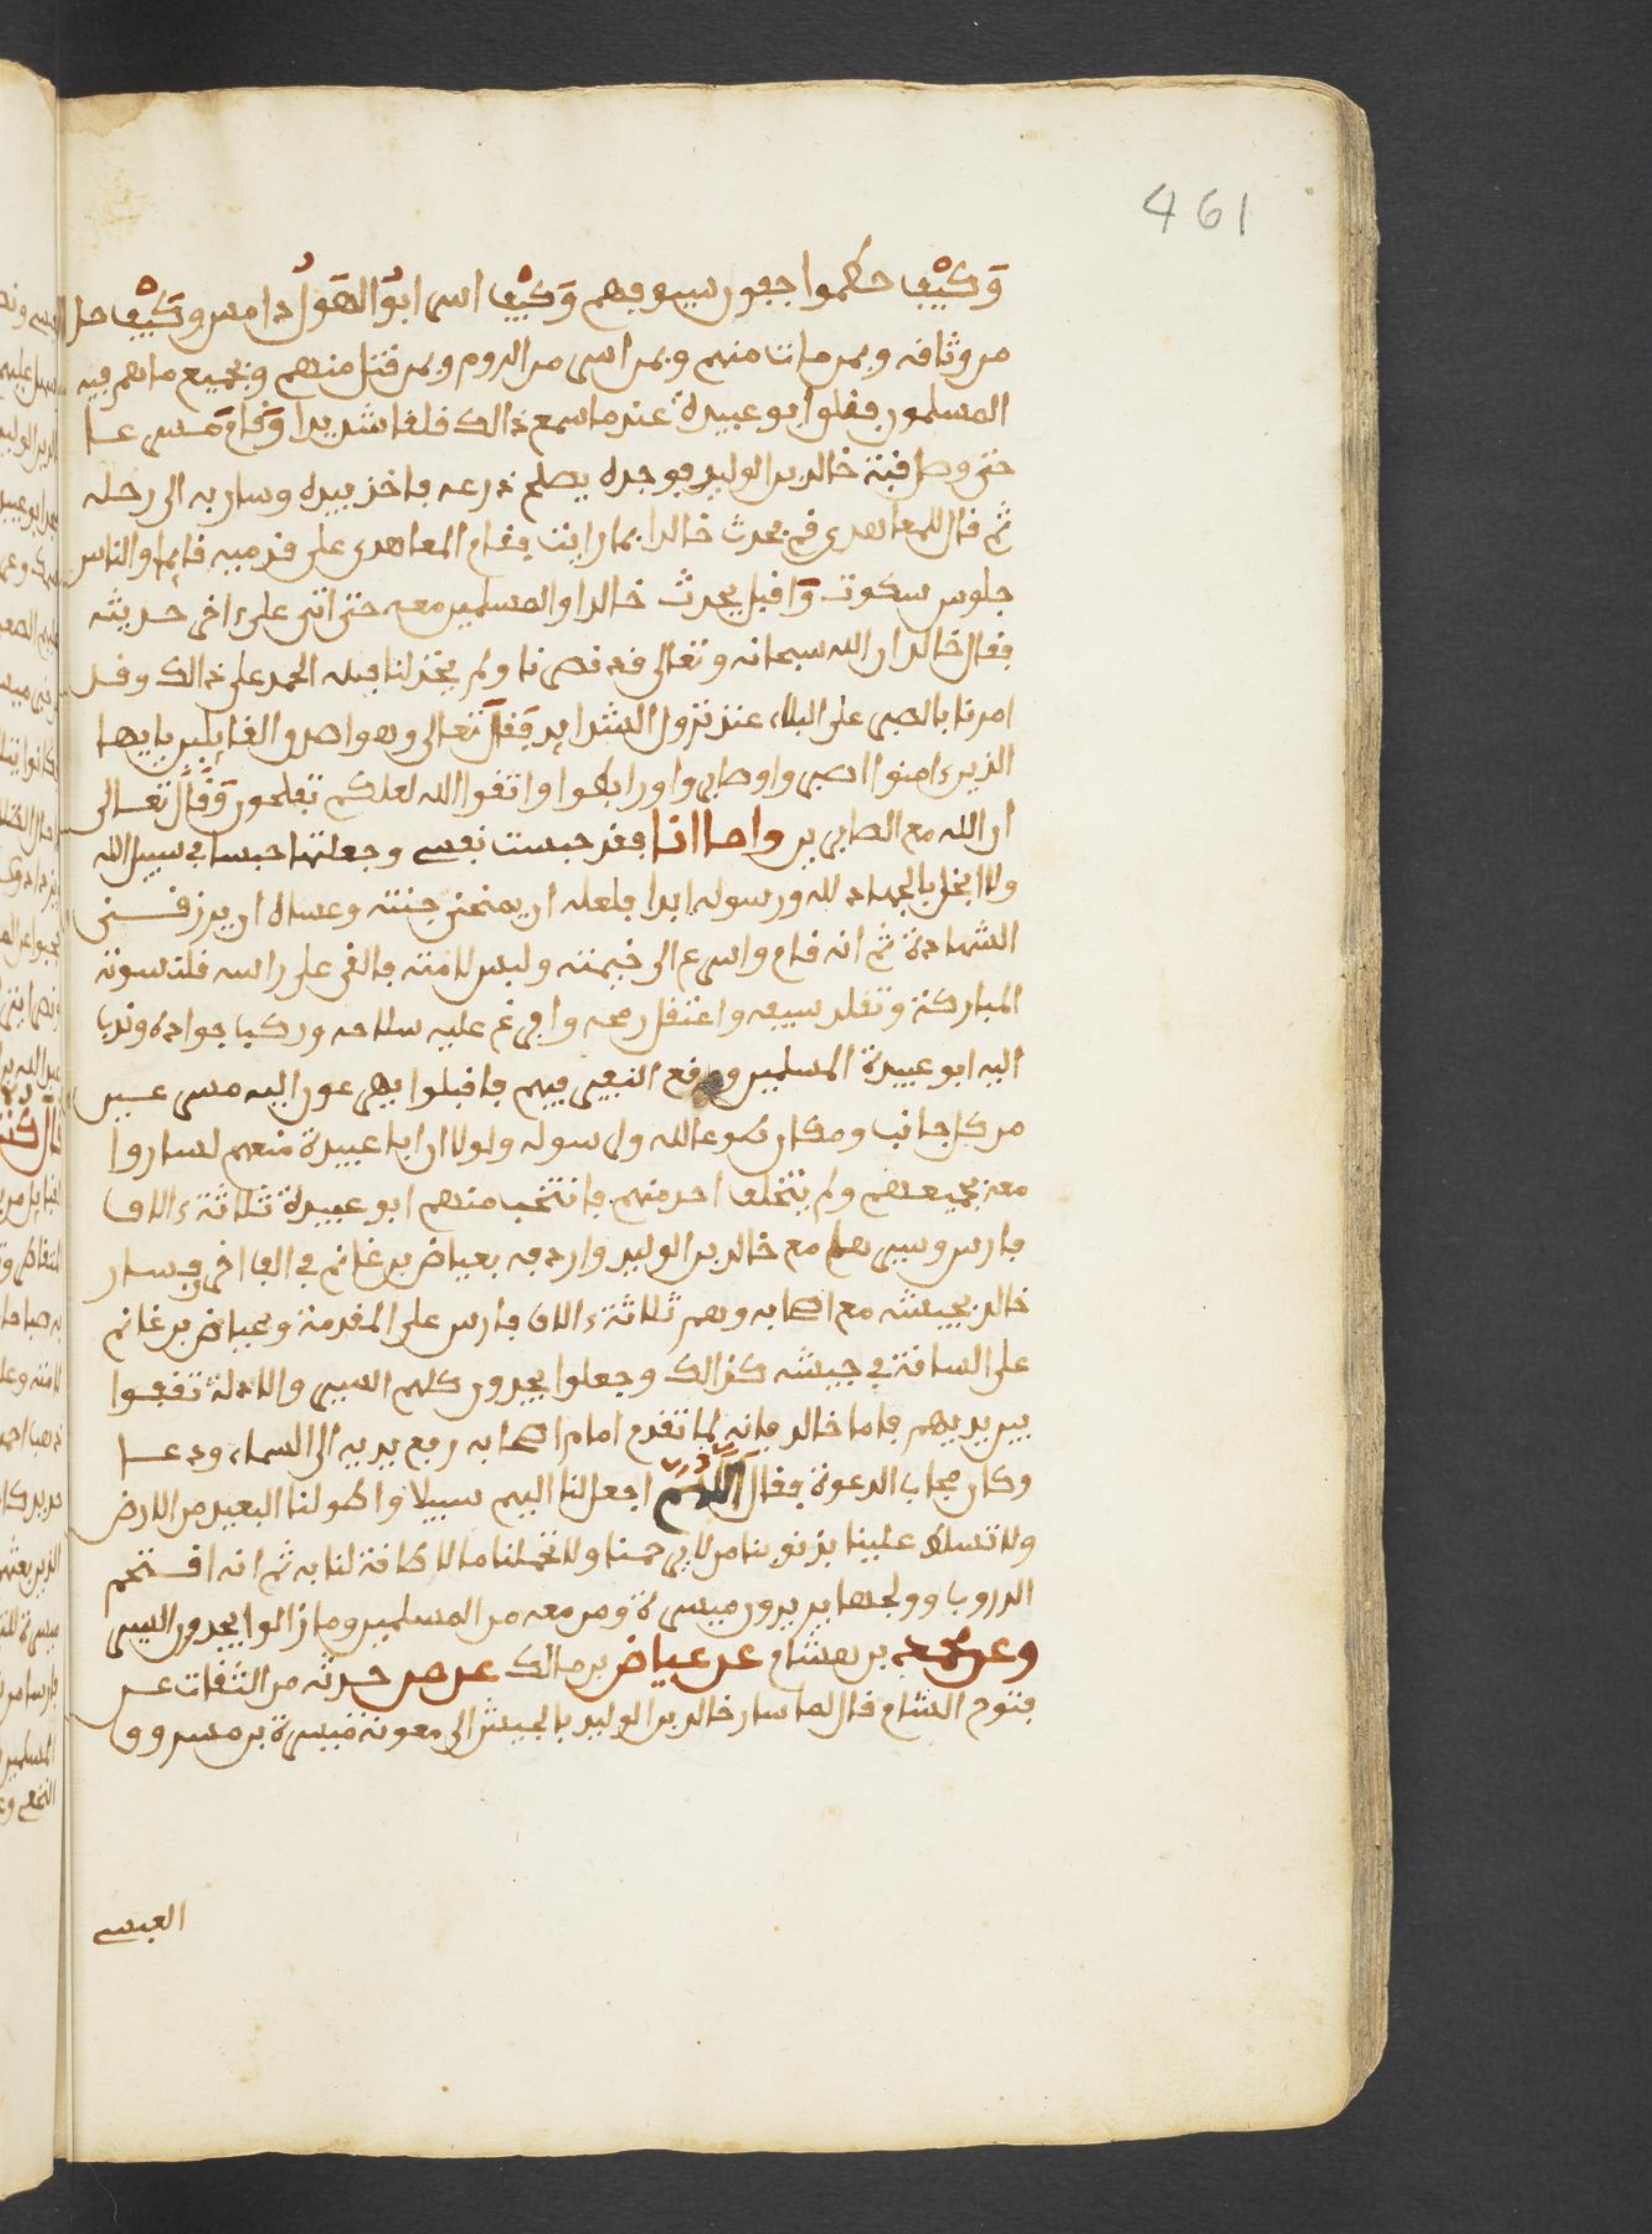 461
وكيف حطموا جفون سيوفهم وكيف اسر ابو الهول دامس وكيف حل
من وثاقه وبمن مات منهم وبمن اسر من الروم وبمن قتل منهم وبجميع ما هم فيه
المسلمون فقلق ابو عبيدة عندما سمع ذالك قلقا شديدا وقام مسرعا
حتى وصل قبة خالد بن الوليد فوجده يصلح درعه فاخذ بيده وسار به الى رحله
ثم قال للمعاهدي قم بحدث خالدا بما رايت فقام المعاهدي على قدميه قايما والناس
جلوس سكوت واقبل يحدث خالدا والمسلمين معه حتى اتى على ءاخر حديثه
فقال خالد ان الله سبحانه وتعالى قد نصرنا ولم يخذلنا فله الحمد على ذالك وقد
امرنا بالصبر على البلاء عند نزول الشدايد فقال تعالى وهو اصدق القايلين يايها
الذين ءامنوا اصبروا وصابروا ورابطوا واتقوا الله لعلكم تفلحون وقال تعالى
ان الله مع الصابرين واما انا فقد حبست نفسي وجعلتها حبسا في سبيل الله
ولا ابخل بالجهاد لله ورسوله ابدا فلعله ان يمنحني جنته وعساه ان يرزقني
الشهادة ثم انه قام واسرع الى خيمته ولبس لامته فالقى على راسه قلنسوته
المباركة وتقلد سيفه واعتقل رمحه وافرغ عليه سلاحه وركب جواده وندب
اليه ابو عبيدة المسلمين ووقع النفير فيهم فاقبلوا يهرعون اليه مسرعين
من كل جانب ومكان طوعا لله ولرسوله ولولا ان ابا عبيدة منعهم لساروا
معه بجميعهم ولم يتخلف احد منهم فانتخب منهم ابو عبيدة ثلاثة ءالاف
فارس وسيرهم مع خالد بن الوليد واردفه بعياض بن غانم في الف اخرى فسار
خالد بجيشه مع اصحابه وهم ثلاثة ءالاف فارس على المقدمة وعياض بن غانم
على الساقة في جيشه كذالك وجعلوا يجدون كلهم السير والادلة تقفوا
بين يديهم فاما خالد فانه لما تقدم امام اصحابه رفع يديه الى السماء ودعا
وكان مجاب الدعوة فقال اللهم اجعل لنا اليهم سبيلا واطو لنا البعيد من الارض
ولا تسلط علينا بذنوبنا من لا يرحمنا ولا تحملنا ما لا طاقة لنا به ثم انه اقتحم
الدروب وولجها يريدون ميسرة ومن معه من المسلمين وما زالوا يجدون السير
وعن محمد بن هشام عن عياض بن مالك عن من حدثه من الثقات عن
فتوح الشام قال لما سار خالد بن الوليد بالجيش الى معونة ميسرة بن مسروق
العبسي